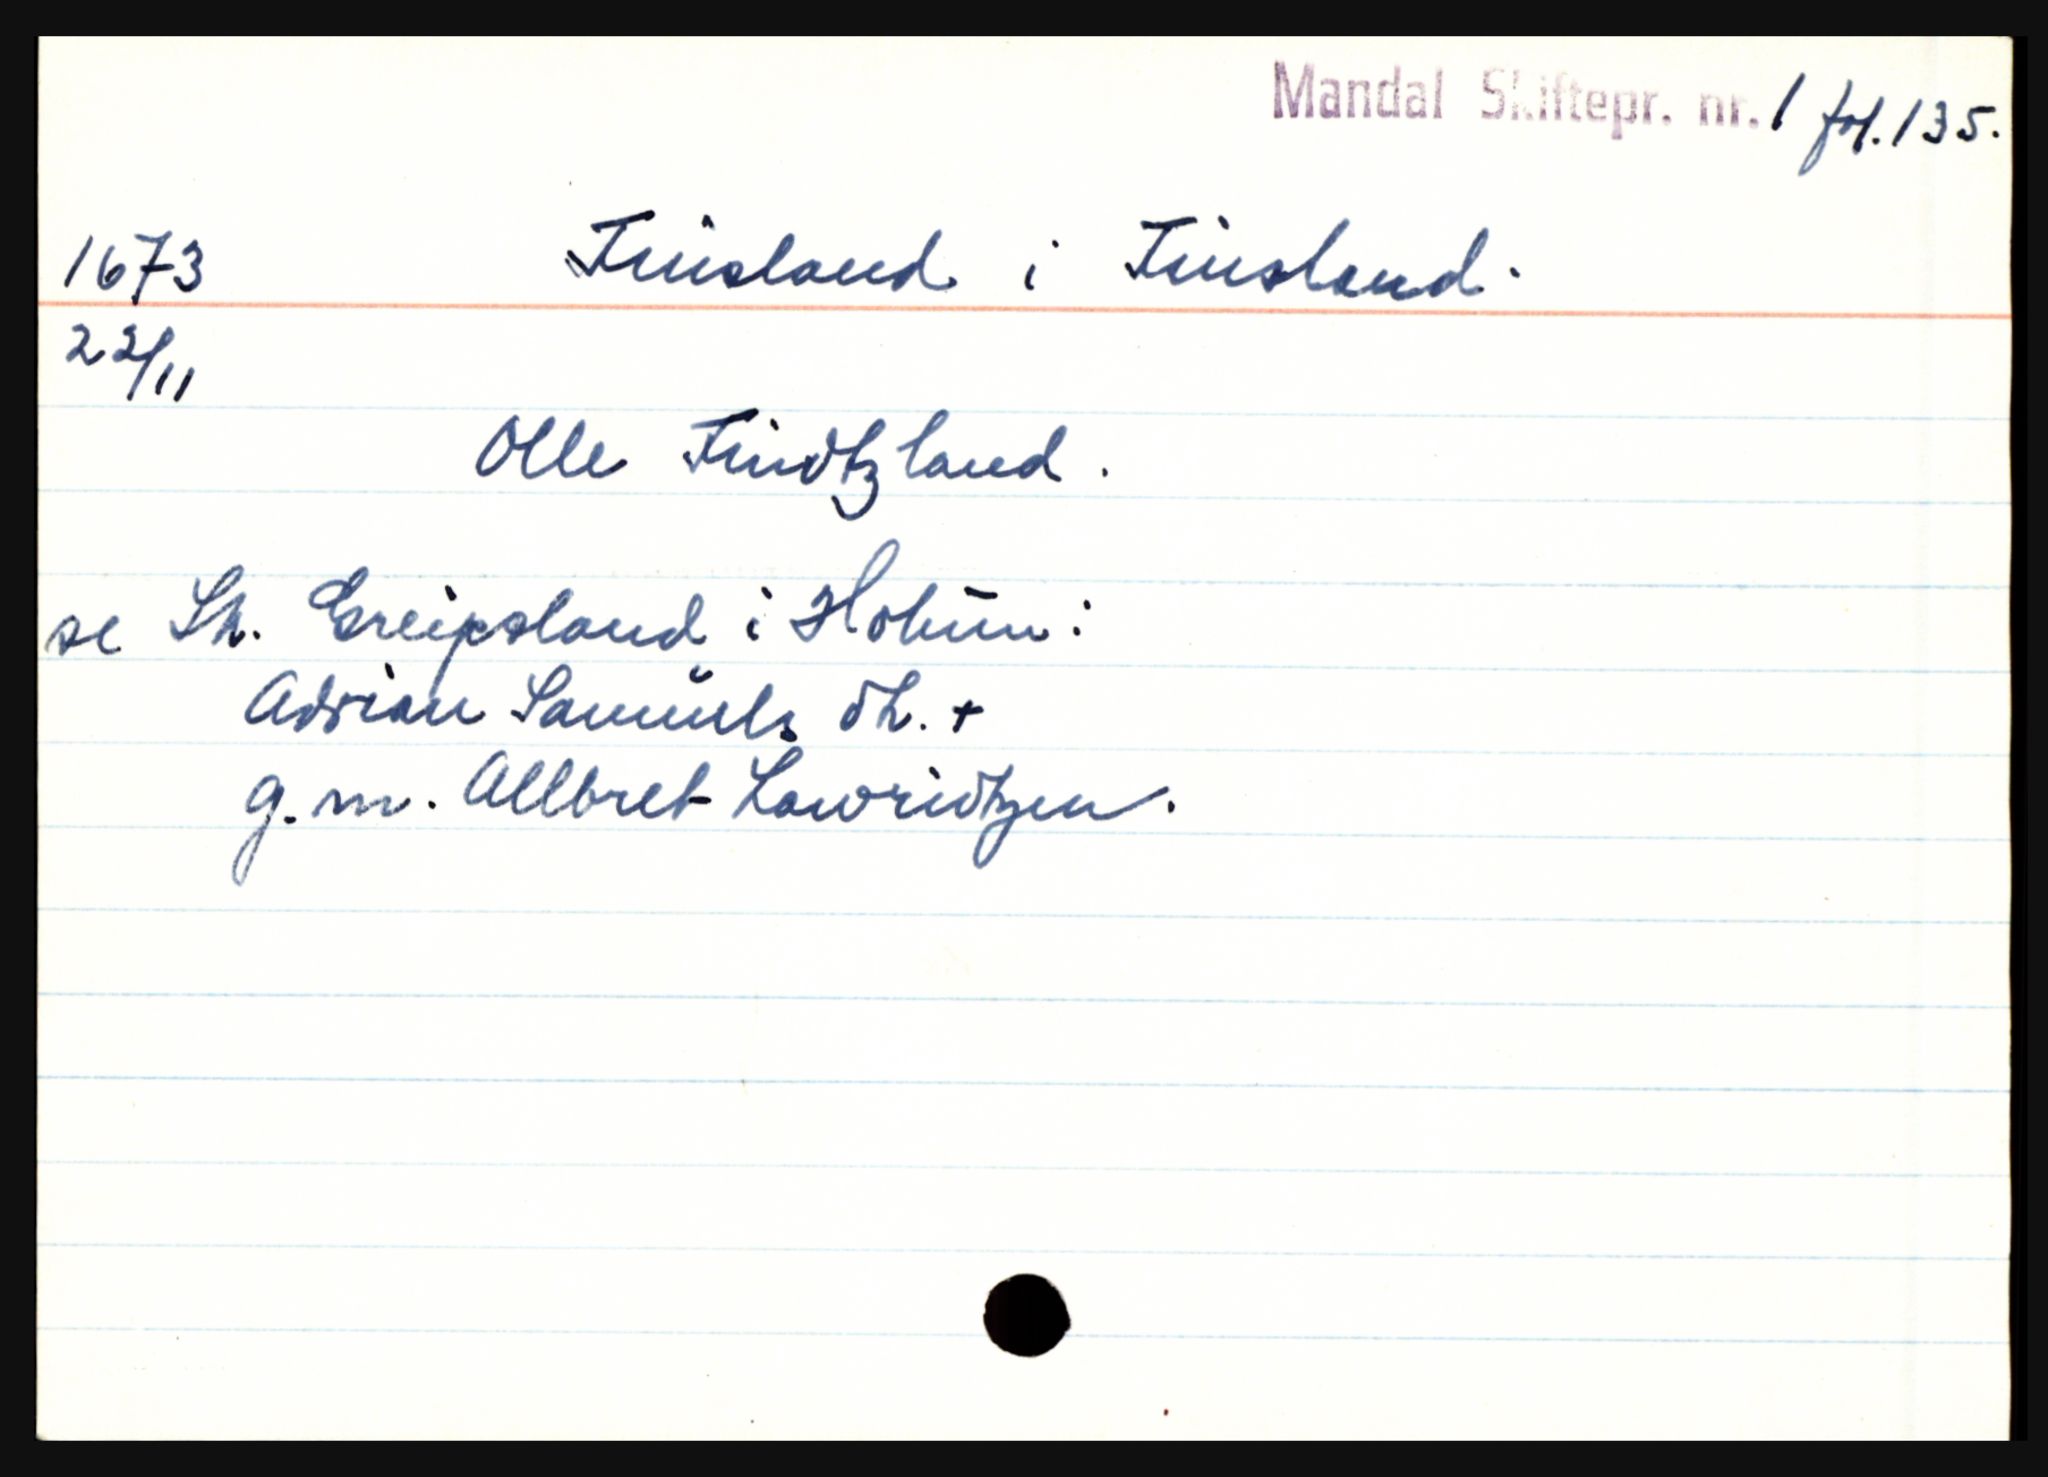 Mandal Skiftepr. nr. 1 fol. 135.
1673 Finsland i Finsland.
22/11
Olle Findtzland.
se Sk. Greipsland i Holum:
Adrian Samuels dt. +
g.m. Allbret Lawridtzen.